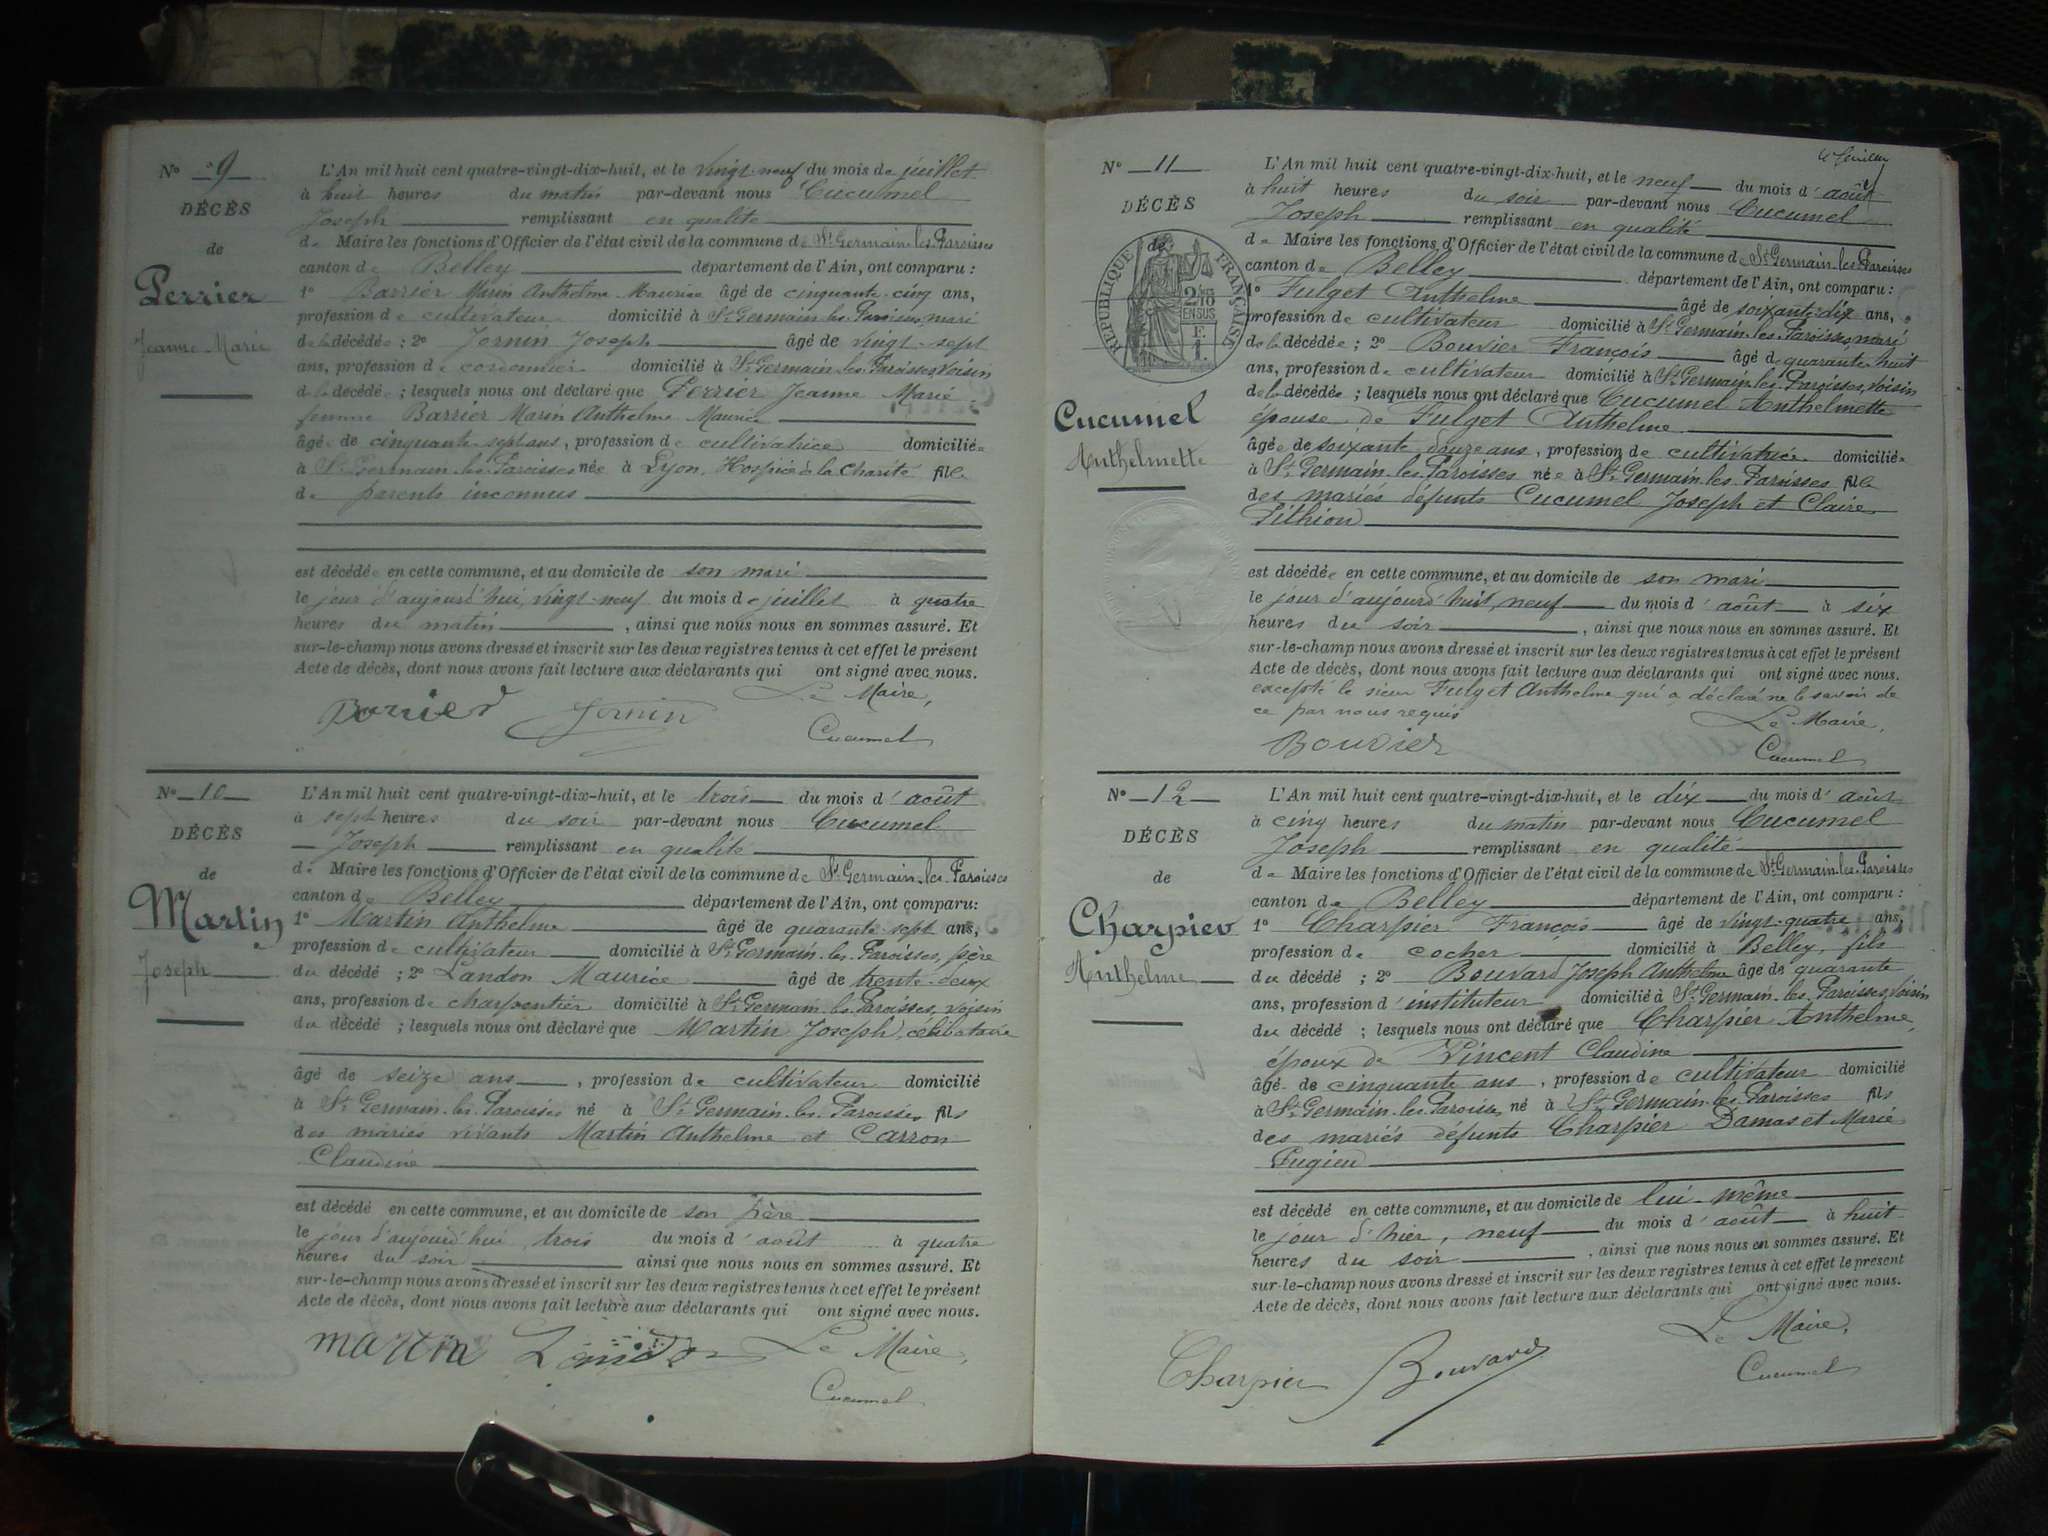 N° 9
DÉCÈS
de
Perrier
Jeanne Marie
L'An mil huit cent quatre-vingt-dix-huit, et le vingt-neuf du mois de juillet
à huit heures du matin par-devant nous Cucumel
Joseph remplissant en qualité
de Maire les fonctions d'Officier de l'état civil de la commune de St Germain-les-Paroisses
canton de Belley département de l'Ain, ont comparu :
1° Barrier Marin Anthelme Maurice âgé de cinquante-cinq ans,
profession de cultivateur domicilié à St Germain-les-Paroisses, mari
de la décédée ; 2° Jornin Joseph âgé de vingt-sept
ans, profession de cordonnier domicilié à St Germain-les-Paroisses, voisin
de la décédée ; lesquels nous ont déclaré que Perrier Jeanne Marie
femme Barrier Marin Anthelme Maurice
âgée de cinquante-sept ans, profession de cultivatrice domiciliée
à St Germain-les-Paroisses née à Lyon, Hospice de la Charité fille
de parents inconnus
est décédée en cette commune, et au domicile de son mari
le jour d'aujourd'hui, vingt-neuf du mois de juillet à quatre
heures du matin, ainsi que nous nous en sommes assuré. Et
sur-le-champ nous avons dressé et inscrit sur les deux registres tenus à cet effet le présent
Acte de décès, dont nous avons fait lecture aux déclarants qui ont signé avec nous.
Le Maire,
Barrier Jornin Cucumel
N° 10
DÉCÈS
de
Martin
Joseph
L'An mil huit cent quatre-vingt-dix-huit, et le trois du mois d'août
à sept heures du soir par-devant nous Cucumel
Joseph remplissant en qualité
de Maire les fonctions d'Officier de l'état civil de la commune de St Germain-les-Paroisses
canton de Belley département de l'Ain, ont comparu:
1° Martin Anthelme âgé de quarante-sept ans,
profession de cultivateur domicilié à St Germain-les-Paroisses, père
du décédé ; 2° Landon Maurice âgé de trente-deux
ans, profession de charpentier domicilié à St Germain-les-Paroisses, voisin
du décédé ; lesquels nous ont déclaré que Martin Joseph, célibataire
âgé de seize ans, profession de cultivateur domicilié
à St Germain-les-Paroisses né à St Germain-les-Paroisses fils
des mariés vivants Martin Anthelme et Carron
Claudine
est décédé en cette commune, et au domicile de son père
le jour d'aujourd'hui trois du mois d'août à quatre
heures du soir ainsi que nous nous en sommes assuré. Et
sur-le-champ nous avons dressé et inscrit sur les deux registres tenus à cet effet le présent
Acte de décès, dont nous avons fait lecture aux déclarants qui ont signé avec nous.
martin Landon Le Maire,
Cucumel
N° 11
DÉCÈS
de
RÉPUBLIQUE FRANÇAISE
2/10
EN SUS
1 F.
Cucumel
Anthelmette
L'An mil huit cent quatre-vingt-dix-huit, et le neuf du mois d'août
à huit heures du soir par-devant nous Cucumel
Joseph remplissant en qualité
de Maire les fonctions d'Officier de l'état civil de la commune de St Germain-les-Paroisses
canton de Belley département de l'Ain, ont comparu :
1° Fulget Anthelme âgé de soixante-dix ans,
profession de cultivateur domicilié à St Germain-les-Paroisses, mari
de la décédée ; 2° Bouvier François âgé de quarante-huit
ans, profession de cultivateur domicilié à St Germain-les-Paroisses, voisin
de la décédée ; lesquels nous ont déclaré que Cucumel Anthelmette
épouse de Fulget Anthelme
âgée de soixante-douze ans, profession de cultivatrice domiciliée
à St Germain-les-Paroisses née à St Germain-les-Paroisses fille
des mariés défunts Cucumel Joseph et Claire
Pithion
est décédée en cette commune, et au domicile de son mari
le jour d'aujourd'huit, neuf du mois d'août à six
heures du soir, ainsi que nous nous en sommes assuré. Et
sur-le-champ nous avons dressé et inscrit sur les deux registres tenus à cet effet le présent
Acte de décès, dont nous avons fait lecture aux déclarants qui ont signé avec nous.
excepté le sieur Fulget Anthelme qui a déclaré ne le savoir de
ce par nous requis
Le Maire,
Bouvier Cucumel
N° 12
DÉCÈS
de
Charpier
Anthelme
L'An mil huit cent quatre-vingt-dix-huit, et le dix du mois d'août
à cinq heures du matin par-devant nous Cucumel
Joseph remplissant en qualité
de Maire les fonctions d'Officier de l'état civil de la commune de St Germain-les-Paroisses
canton de Belley département de l'Ain, ont comparu :
1° Charpier François âgé de vingt-quatre ans,
profession de cocher domicilié à Belley, fils
du décédé ; 2° Bouvard Joseph Anthelme âgé de quarante
ans, profession d'instituteur domicilié à St Germain-les-Paroisses, voisin
du décédé ; lesquels nous ont déclaré que Charpier Anthelme,
époux de Vincent Claudine
âgé de cinquante ans, profession de cultivateur domicilié
à St Germain-les-Paroisses né à St Germain-les-Paroisses fils
des mariés défunts Charpier Damas et Marie
Fugier
est décédé en cette commune, et au domicile de lui-même
le jour d'hier, neuf du mois d'août à huit
heures du soir, ainsi que nous nous en sommes assuré. Et
sur-le-champ nous avons dressé et inscrit sur les deux registres tenus à cet effet le présent
Acte de décès, dont nous avons fait lecture aux déclarants qui ont signé avec nous.
Le Maire,
Charpier Bouvard Cucumel